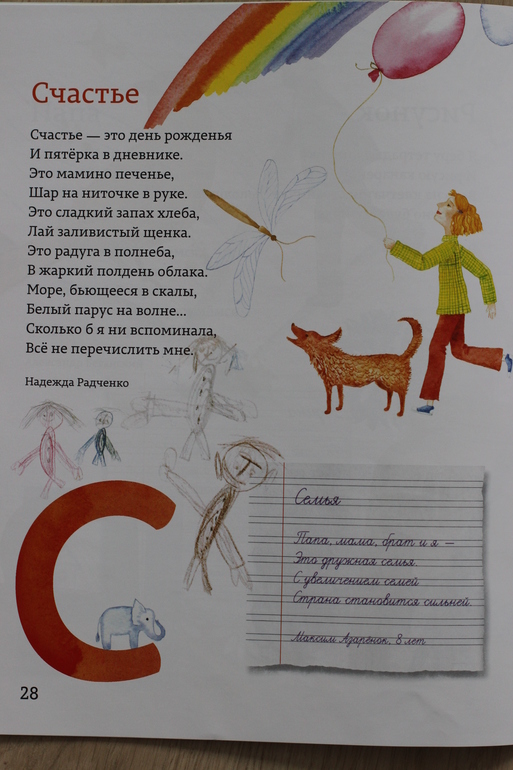 Счастье
Счастье — это день рожденья
И пятёрка в дневнике.
Это мамино печенье,
Шар на ниточке в руке.
Это сладкий запах хлеба,
Лай заливистый щенка.
Это радуга в полнеба,
В жаркий полдень облака.
Море, бьющееся в скалы,
Белый парус на волне...
Сколько б я ни вспоминала,
Всё не перечислить мне.
Надежда Радченко
С
Семья
Папа, мама, брат и я —
Это дружная семья.
С увеличением семей
Страна становится сильней.
Максим Азарёнок, 8 лет
28